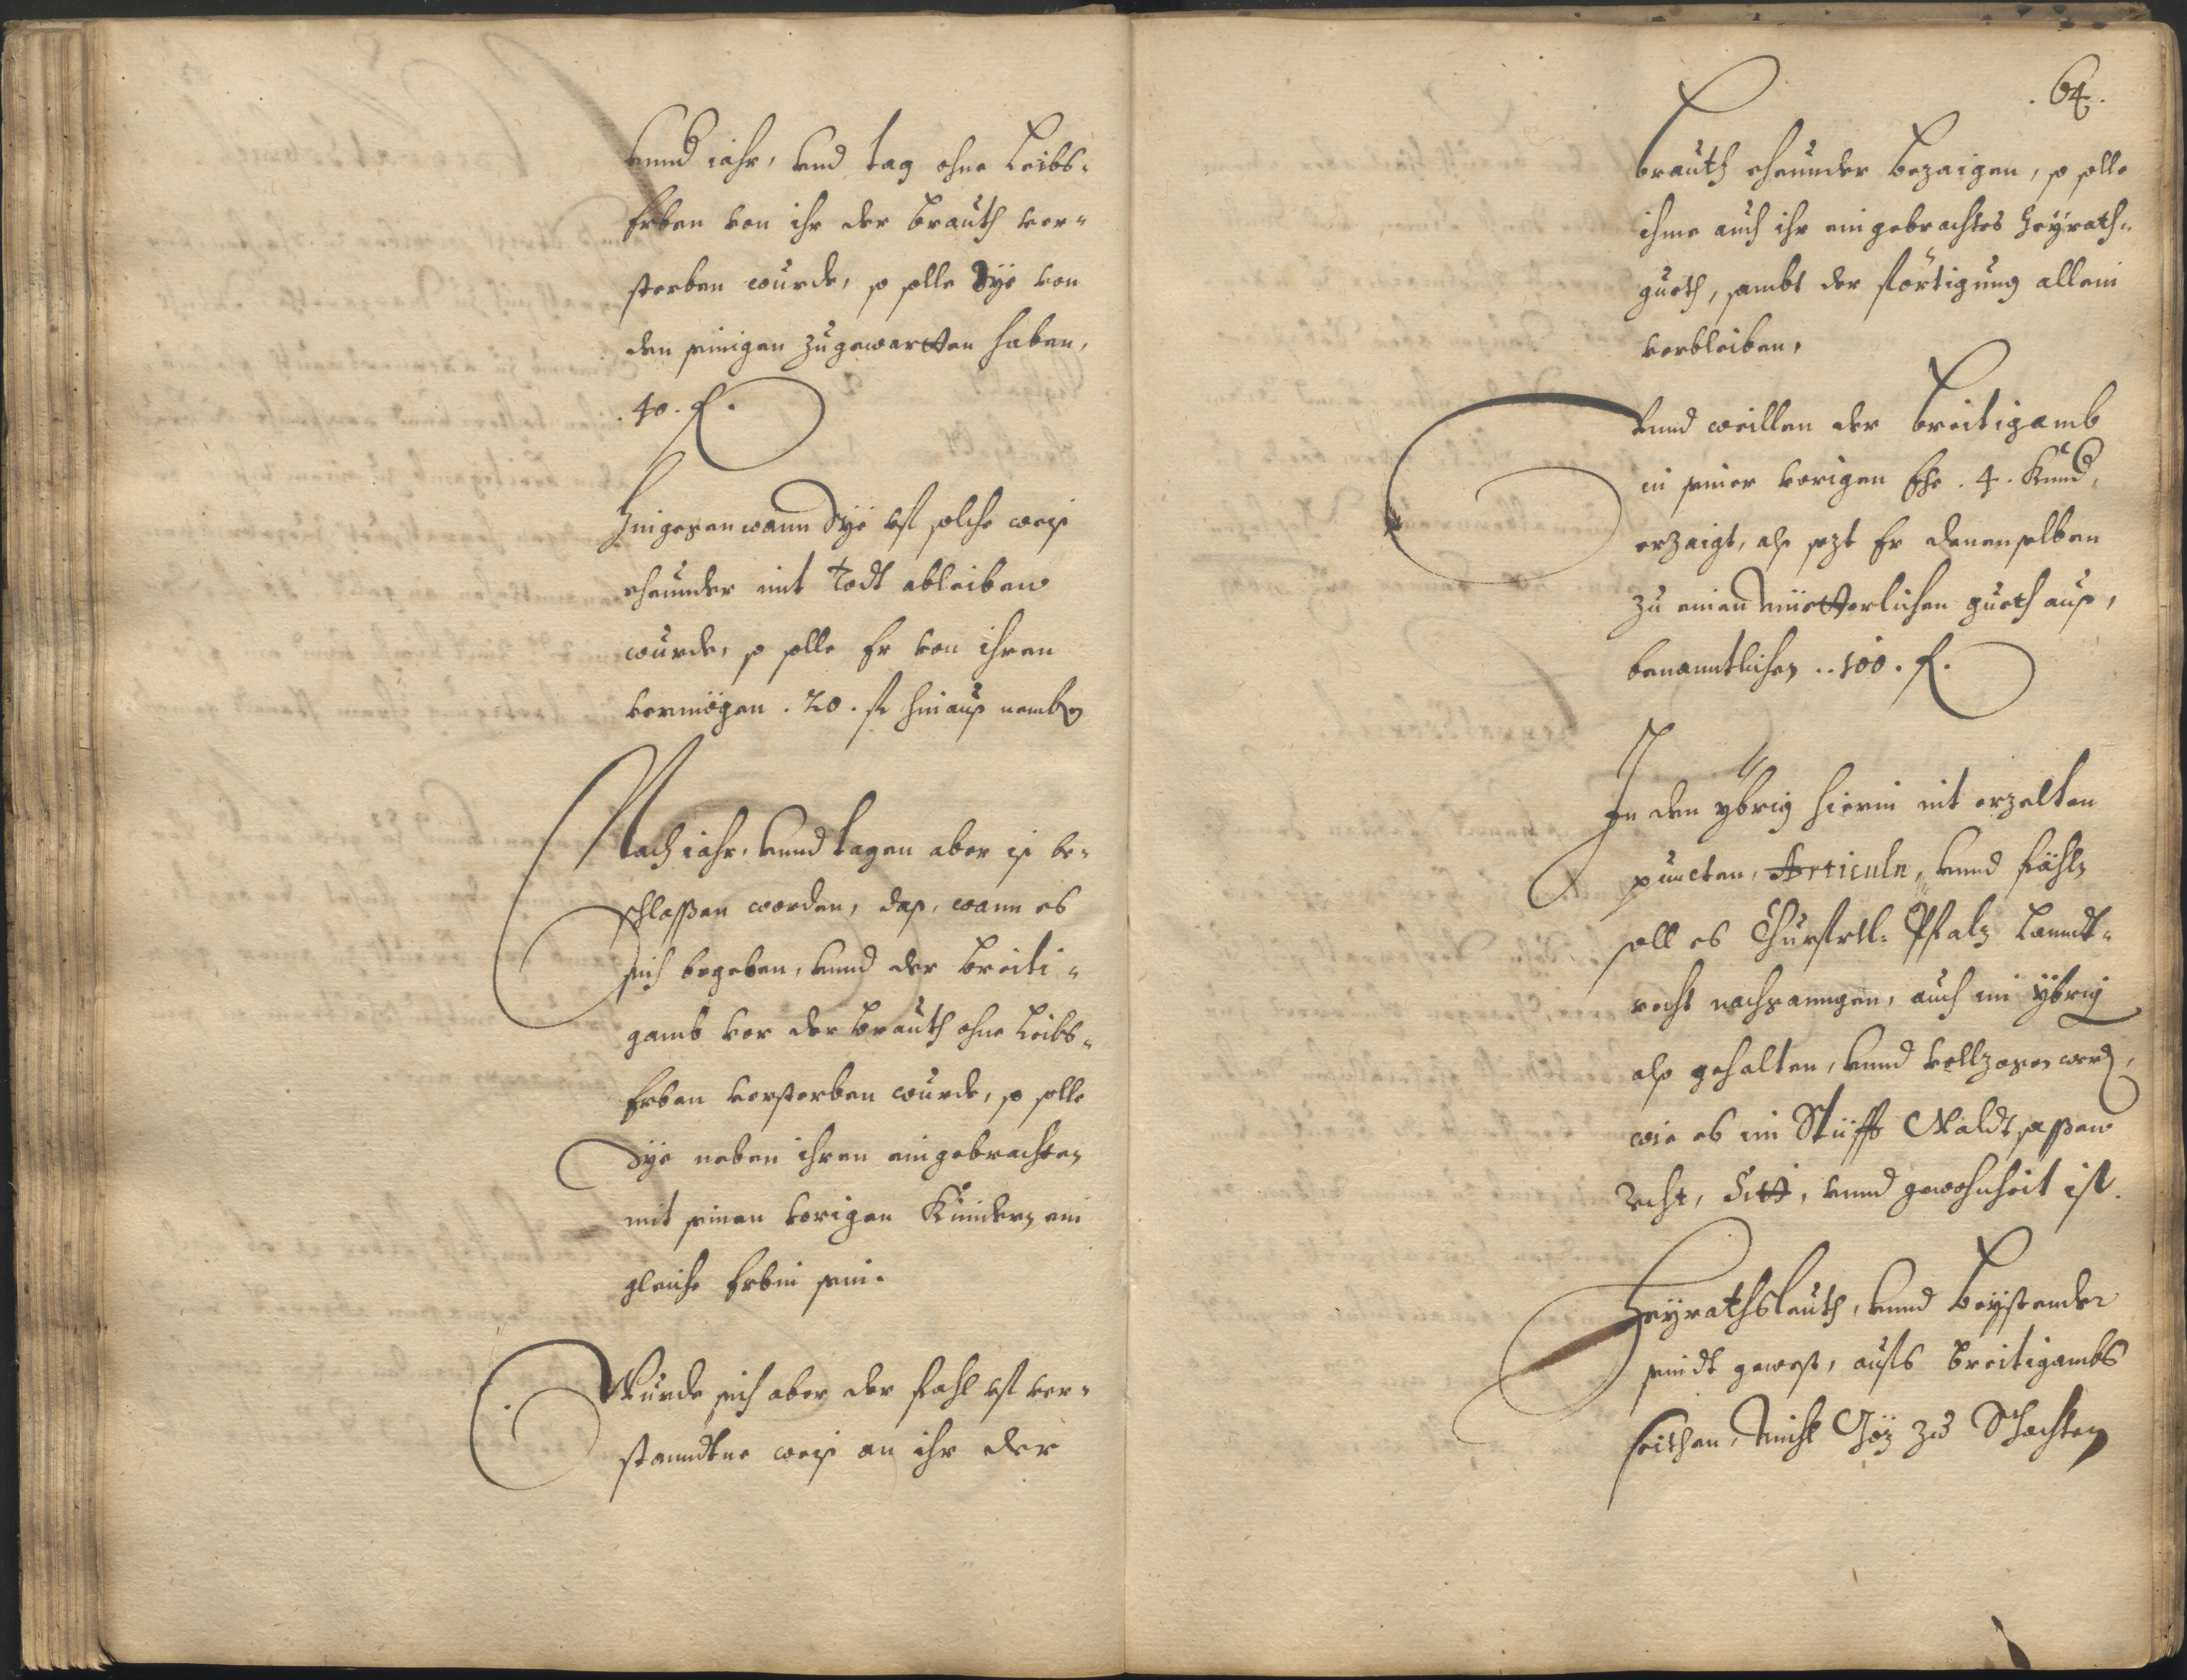 vnnd iahr, vnd tag ohne Leibs-
Erben von ihr der brauth ver-
sterben wurde, so solle Sÿe von
den seinigen zugewartten haben,
. 40. fl.
Hingegen wann Sÿe vf solche weiß
ehennder mit Todt ableiben
wurde, so solle Er von ihren
vermögen . 20 . fl hinauß nemben
Nach iahr, vnnd tagen aber ist be-
schlossen worden, daß, wann es
sich begeben, vnnd der breiti-
gamb vor der brauth ohne Leibs-
Erben versterben wurde, so solle
Sÿe neben ihren eingebrachten
mit seinen vorigen Kündern ein
gleiche Erbin sein.
Wurde sich aber der fahl vf ver-
standtne weiß an ihr der
. 64.
brauth ehennder bezaigen, so solle
ihme auch ihr eingebrachtes Heÿrath-
gueth, sambt derförtigung allein
verbleiben,
Vnnd weillen der breitigamb
in seiner vorigen Ehe . 4 . Künd,
erzaigt, alß sezt Er denenselben
zu einen müetterlichen gueth auß,
benanntlichen .. 100 . fl.
In den ybrig hierin nit erzelten
puncten, Articuln, vnnd fähln
soll es Churfrtl: Pfalz Lanndt-
recht nachganngen, auch im ÿbrig
alß gehalten, vnnd vollzogen werd,
wie es im Stüfft Waldtsassen
recht, Sitt, vnnd gewohnheit ist.
Heÿrathsleuth, vnnd beÿstender
seindt gewest, aufs breitigambs
seithen, Michl Göz zu Schachten